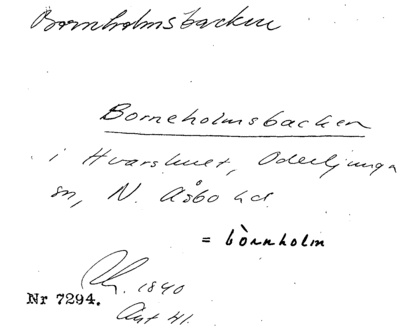 Bornholmsbacken
Borneholmsbacken
i Hvarshult, Oderljunga
sn, N. Åsbo hd
= bòrnholm
1840
Nr 7294.
Ant 41.